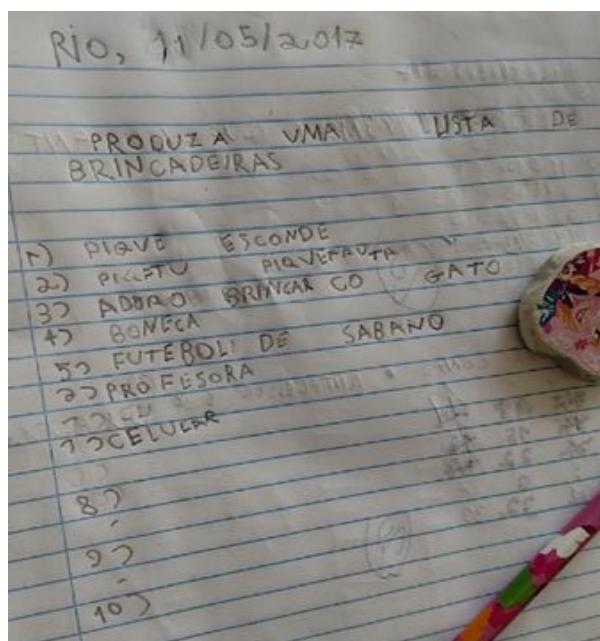 RIO, 11/05/2017
PRODUZA UMA LISTA DE
BRINCADEIRAS
1) PIQUE ESCONDE
2) PIQUEFRUTA
3) ADORO BRINCAR CO GATO
4) BONECA
5) FUTEBOLI DE SABANO
PROFESORA
7) CELULAR
8)
9)
10)